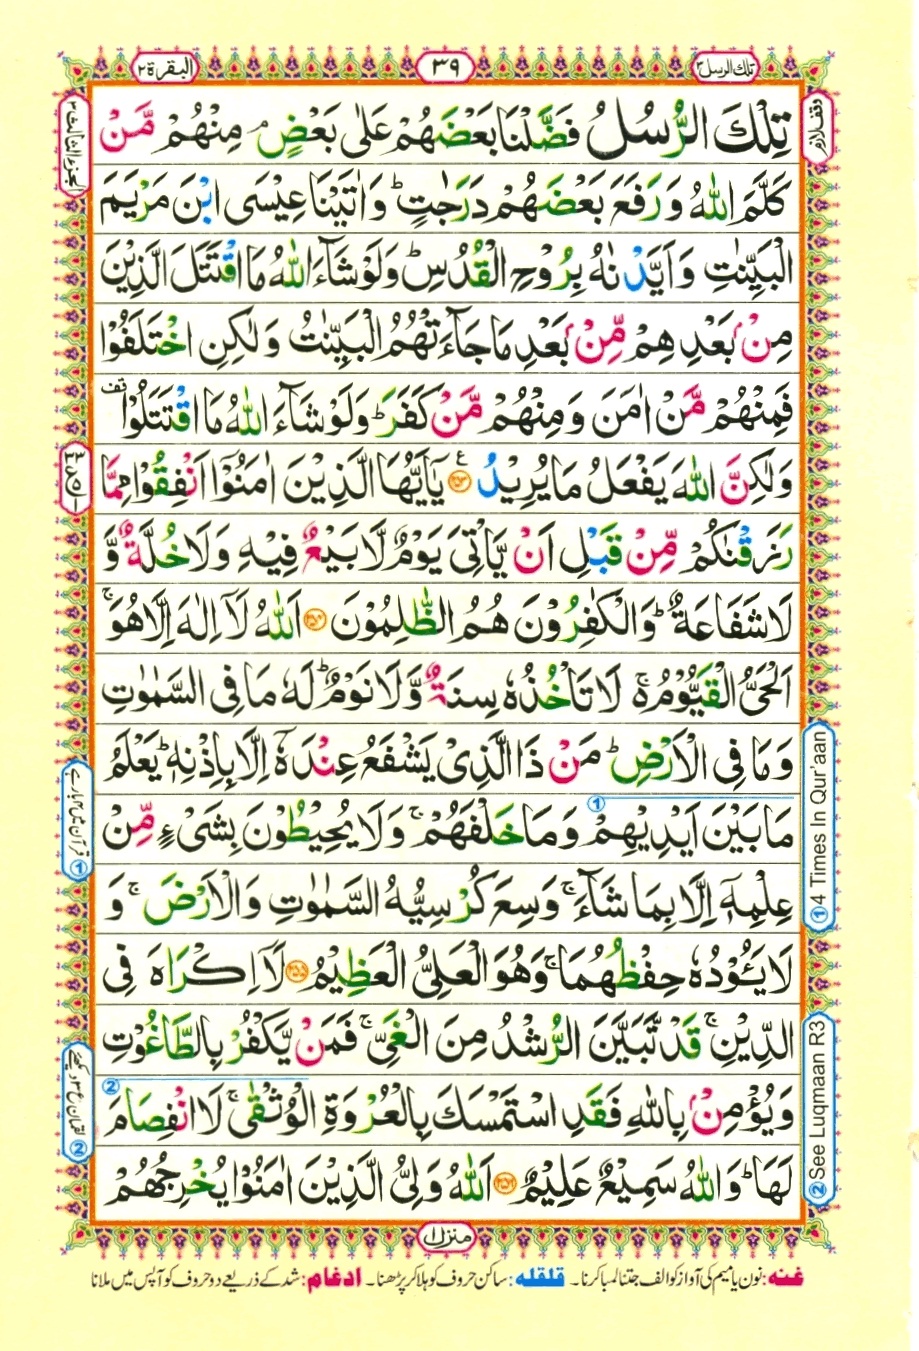 تلك الرسل ٣
٣٩
البقرة ٢
وقف لازم
الجزء الثالث ٣
تِلْكَ الرُّسُلُ فَضَّلْنَا بَعْضَهُمْ عَلٰى بَعْضٍ ۘ مِنْهُمْ مَّنْ
كَلَّمَ اللّٰهُ وَرَفَعَ بَعْضَهُمْ دَرَجٰتٍ ؕ وَاٰتَيْنَا عِيْسَى ابْنَ مَرْيَمَ
الْبَيِّنٰتِ وَاَيَّدْنٰهُ بِرُوْحِ الْقُدُسِ ؕ وَلَوْ شَآءَ اللّٰهُ مَا اقْتَتَلَ الَّذِيْنَ
مِنْۢ بَعْدِهِمْ مِّنْۢ بَعْدِ مَا جَآءَتْهُمُ الْبَيِّنٰتُ وَلٰكِنِ اخْتَلَفُوْا
فَمِنْهُمْ مَّنْ اٰمَنَ وَمِنْهُمْ مَّنْ كَفَرَ ؕ وَلَوْ شَآءَ اللّٰهُ مَا اقْتَتَلُوْا قف
وَلٰكِنَّ اللّٰهَ يَفْعَلُ مَا يُرِيْدُ ع ٢٥٣ يٰۤاَيُّهَا الَّذِيْنَ اٰمَنُوْۤا اَنْفِقُوْا مِمَّا
رَزَقْنٰكُمْ مِّنْ قَبْلِ اَنْ يَّاْتِيَ يَوْمٌ لَّا بَيْعٌ فِيْهِ وَلَا خُلَّةٌ وَّ
لَا شَفَاعَةٌ ؕ وَالْكٰفِرُوْنَ هُمُ الظّٰلِمُوْنَ ٢٥٤ اَللّٰهُ لَاۤ اِلٰهَ اِلَّا هُوَ ۚ
اَلْحَيُّ الْقَيُّوْمُ ۚ لَا تَاْخُذُهٗ سِنَةٌ وَّلَا نَوْمٌ ؕ لَهٗ مَا فِي السَّمٰوٰتِ
وَمَا فِي الْاَرْضِ ؕ مَنْ ذَا الَّذِيْ يَشْفَعُ عِنْدَهٗۤ اِلَّا بِاِذْنِهٖ ؕ يَعْلَمُ
①
مَا بَيْنَ اَيْدِيْهِمْ وَمَا خَلْفَهُمْ ۚ وَلَا يُحِيْطُوْنَ بِشَيْءٍ مِّنْ
عِلْمِهٖۤ اِلَّا بِمَا شَآءَ ۚ وَسِعَ كُرْسِيُّهُ السَّمٰوٰتِ وَالْاَرْضَ ۚ وَ
لَا يَـُٔوْدُهٗ حِفْظُهُمَا ۚ وَهُوَ الْعَلِيُّ الْعَظِيْمُ ٢٥٥ لَاۤ اِكْرَاهَ فِي
الدِّيْنِ ۚ قَدْ تَّبَيَّنَ الرُّشْدُ مِنَ الْغَيِّ ۚ فَمَنْ يَّكْفُرْ بِالطَّاغُوْتِ
②
وَيُؤْمِنْۢ بِاللّٰهِ فَقَدِ اسْتَمْسَكَ بِالْعُرْوَةِ الْوُثْقٰى ۚ لَا انْفِصَامَ
لَهَا ؕ وَاللّٰهُ سَمِيْعٌ عَلِيْمٌ ٢٥٦ اَللّٰهُ وَلِيُّ الَّذِيْنَ اٰمَنُوْا يُخْرِجُهُمْ
① 4 Times In Qur'aan
② See Luqmaan R3
قرآن میں ۴ بار ہے ①
لقمان رع ۳ دیکھئے ②
منزل ١
غنه: نون یا میم کی آواز کو الف جتنا لمبا کرنا۔ قلقله: ساکن حروف کو ہلا کر پڑھنا۔ ادغام: شد کے ذریعے دو حروف کو آپس میں ملانا